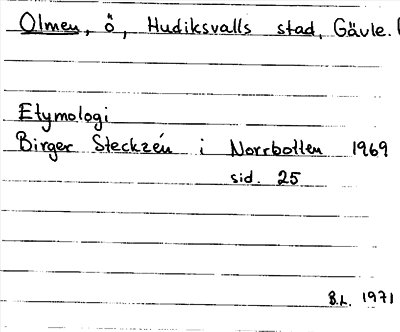 Olmen, ö, Hudiksvalls stad, Gävle.
Etymologi
Birger Steckzén i Norrbotten 1969
sid. 25
B.L. 1971